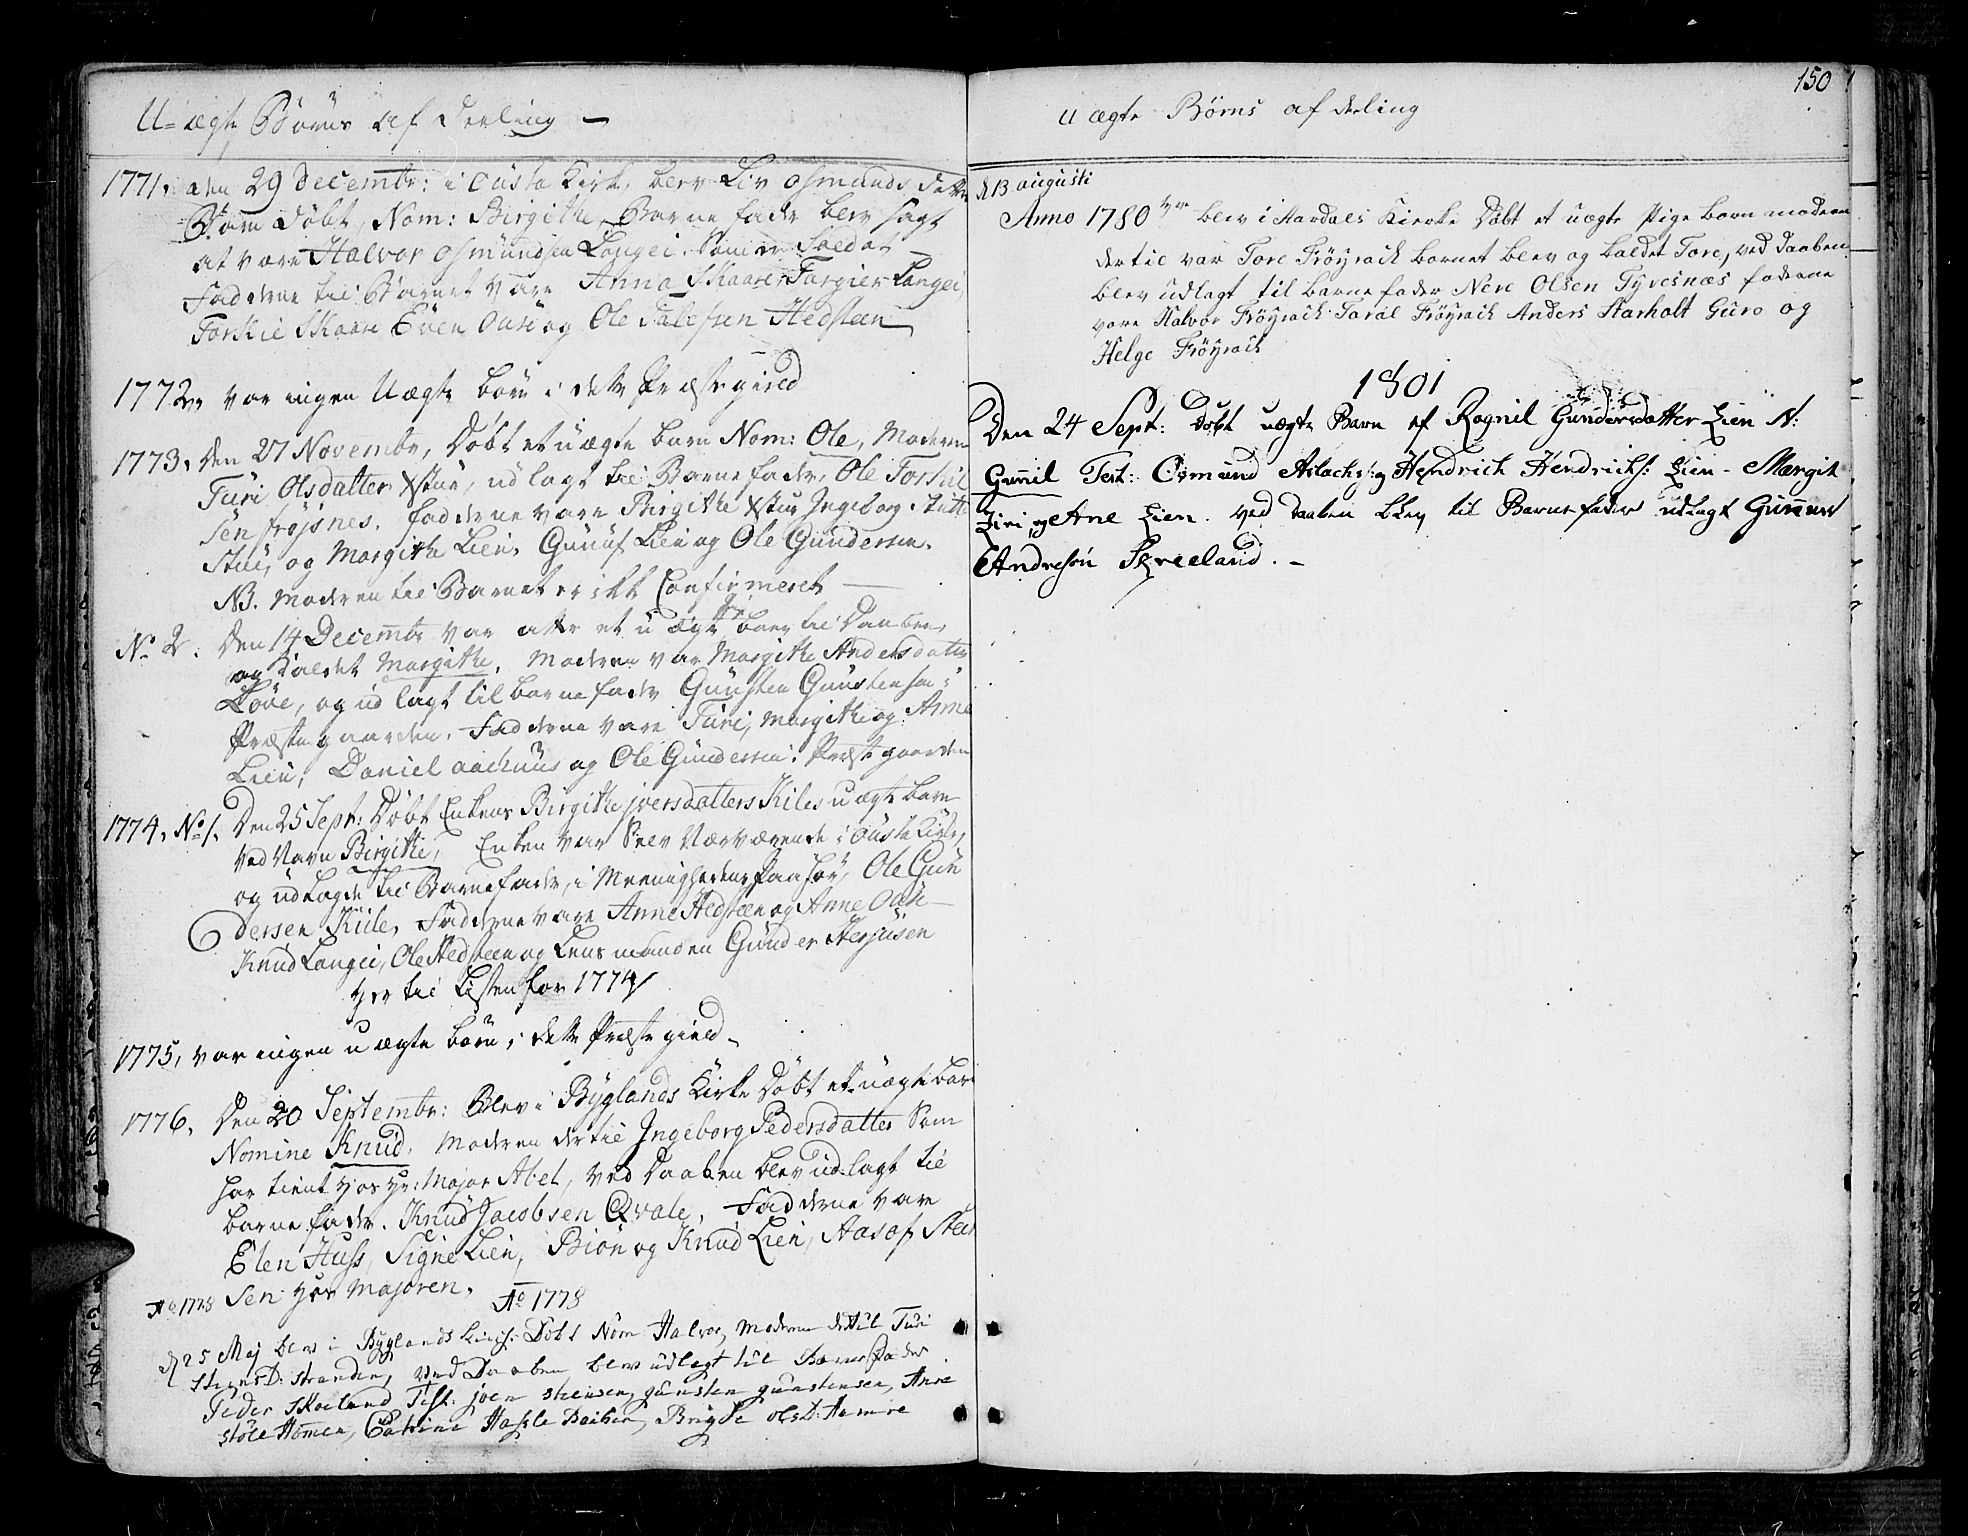 U-ægte Børns afdeeling
1771, den 29 Decembr: i Ousta Kirk, blev Liv Osmunds datter
Barn Døbt, Nom: Birgithe, Barne fader blev sagt
at være Halvor Osmundsen Langei. Som er Soldat
Fadderne til Barnet vare Anna Skaarer Targier Langei,
Torkie Skaare Even Ouse og Ole Talefsen Hedsteen
1772, var ingen Uægte børn i dette Præstegield
1773, den 27 Novembr, Døbt et uægte barn Nom: Ole, Moderen
Turi Olsdatter udlagt til Barnefader, Ole Torkil
sen frøjsnes. fadderne vare Birgithe Ingeborg
Stue, og Margithe Lien, Gunuf Lien og Ole Gundersen.
NB. Moderen til Barnet er ikke Confirmeret
No 2. Den 14 Decembr var atter et uægte barn til Daaben,
og kaldet Margithe. Moderen var Margithe Andersdatter
og udlagt til barnefader Gunsten Gunstensen i
Præstegaarden. Fadderne vare Turi, Margithe og Anne
Lien, Daniel Aachuus og Ole Gundersen i Præstgaarden
1774, No 1. Den 25 Sept: Døbt Enkens Birgithe Joersdatters Kiles uægte barn
ved Navn Birgithe, Enken var Selv Nærværende i Ousta Kirke,
og udlagde til Barnefader, i Meenighedens Paahør, Ole Gun
dersen Kiile, Fadderne vare Anne Hedsteen og Anne
Knud Langei, Ole Hedsteen og Lensmanden Gunder Herjusen
Her til Listen for 1774
1775, var ingen uægte børn i dette Præstegield
1776, Den 20 Septembr: Blev i Byglands Kirke Døbt et uægte barn
Nomine Knud, Moderen dertil Ingeborg Pedersdatter Som
har tient hos Hr: Major Abel, ved Daaben blev udlagt til
barnefader. Knud Jacobsen Qvale, Fadderne vare
Elen Huss, Signe Lien, Biøn og Knud Lien, Aasof
sen hos Majoren.
Ao 1778 Ao 1778
d 25 Maj blev i Byglands Kirch: Døbt Nom Halvor, Moderen dertil Turi
SteensD: Stranden, ved Daaben blev udlagt til Barnefader
Peder Skoeland Test: joen steensen, gunsten gunstensen, Anne
støle Homen, Catrine Hassle Bakken, Brigte OlsD:
150
u ægte Børns afdeeling
d 13 augusti
Anno 1780 blev i Aardals Kircke Døbt et uægte Pige barn moderen
dertil var Tore Frøyrack barnet blev og kaldet Tore, ved Daaben
blev udlagt til barnefader Neve Olsen Tyvesnæs faderne
vare Halvor Frøyrack Taral Frøyrack Anders Harholt Guro og
Helge Frøyrack
1801
Den 24 Sept: Døbt uægte Barn af Ragnil Gundersdatter Lien N:
Gunil Test: Osmund Aslachs: og Hendrich Hendrichs: Lien - Margit
Ziri, og Ane Lien. Ved Daaben blev til Barnefader udlagt Gunnar
Andresøn Skreeland. -